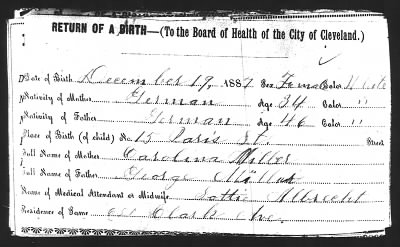 RETURN OF A BIRTH—(To the Board of Health of the City of Cleveland.)
Date of Birth December 19, 1887 Sex Female Color White
Nativity of Mother German Age 34 Color "
Nativity of Father German Age 46 Color "
Place of Birth (of child) No. 15 Paris St. Street
Full Name of Mother Carolina Miller
Full Name of Father George Miller
Name of Medical Attendant or Midwife, Lottie Albrecht
Residence of Same Clark Ave.